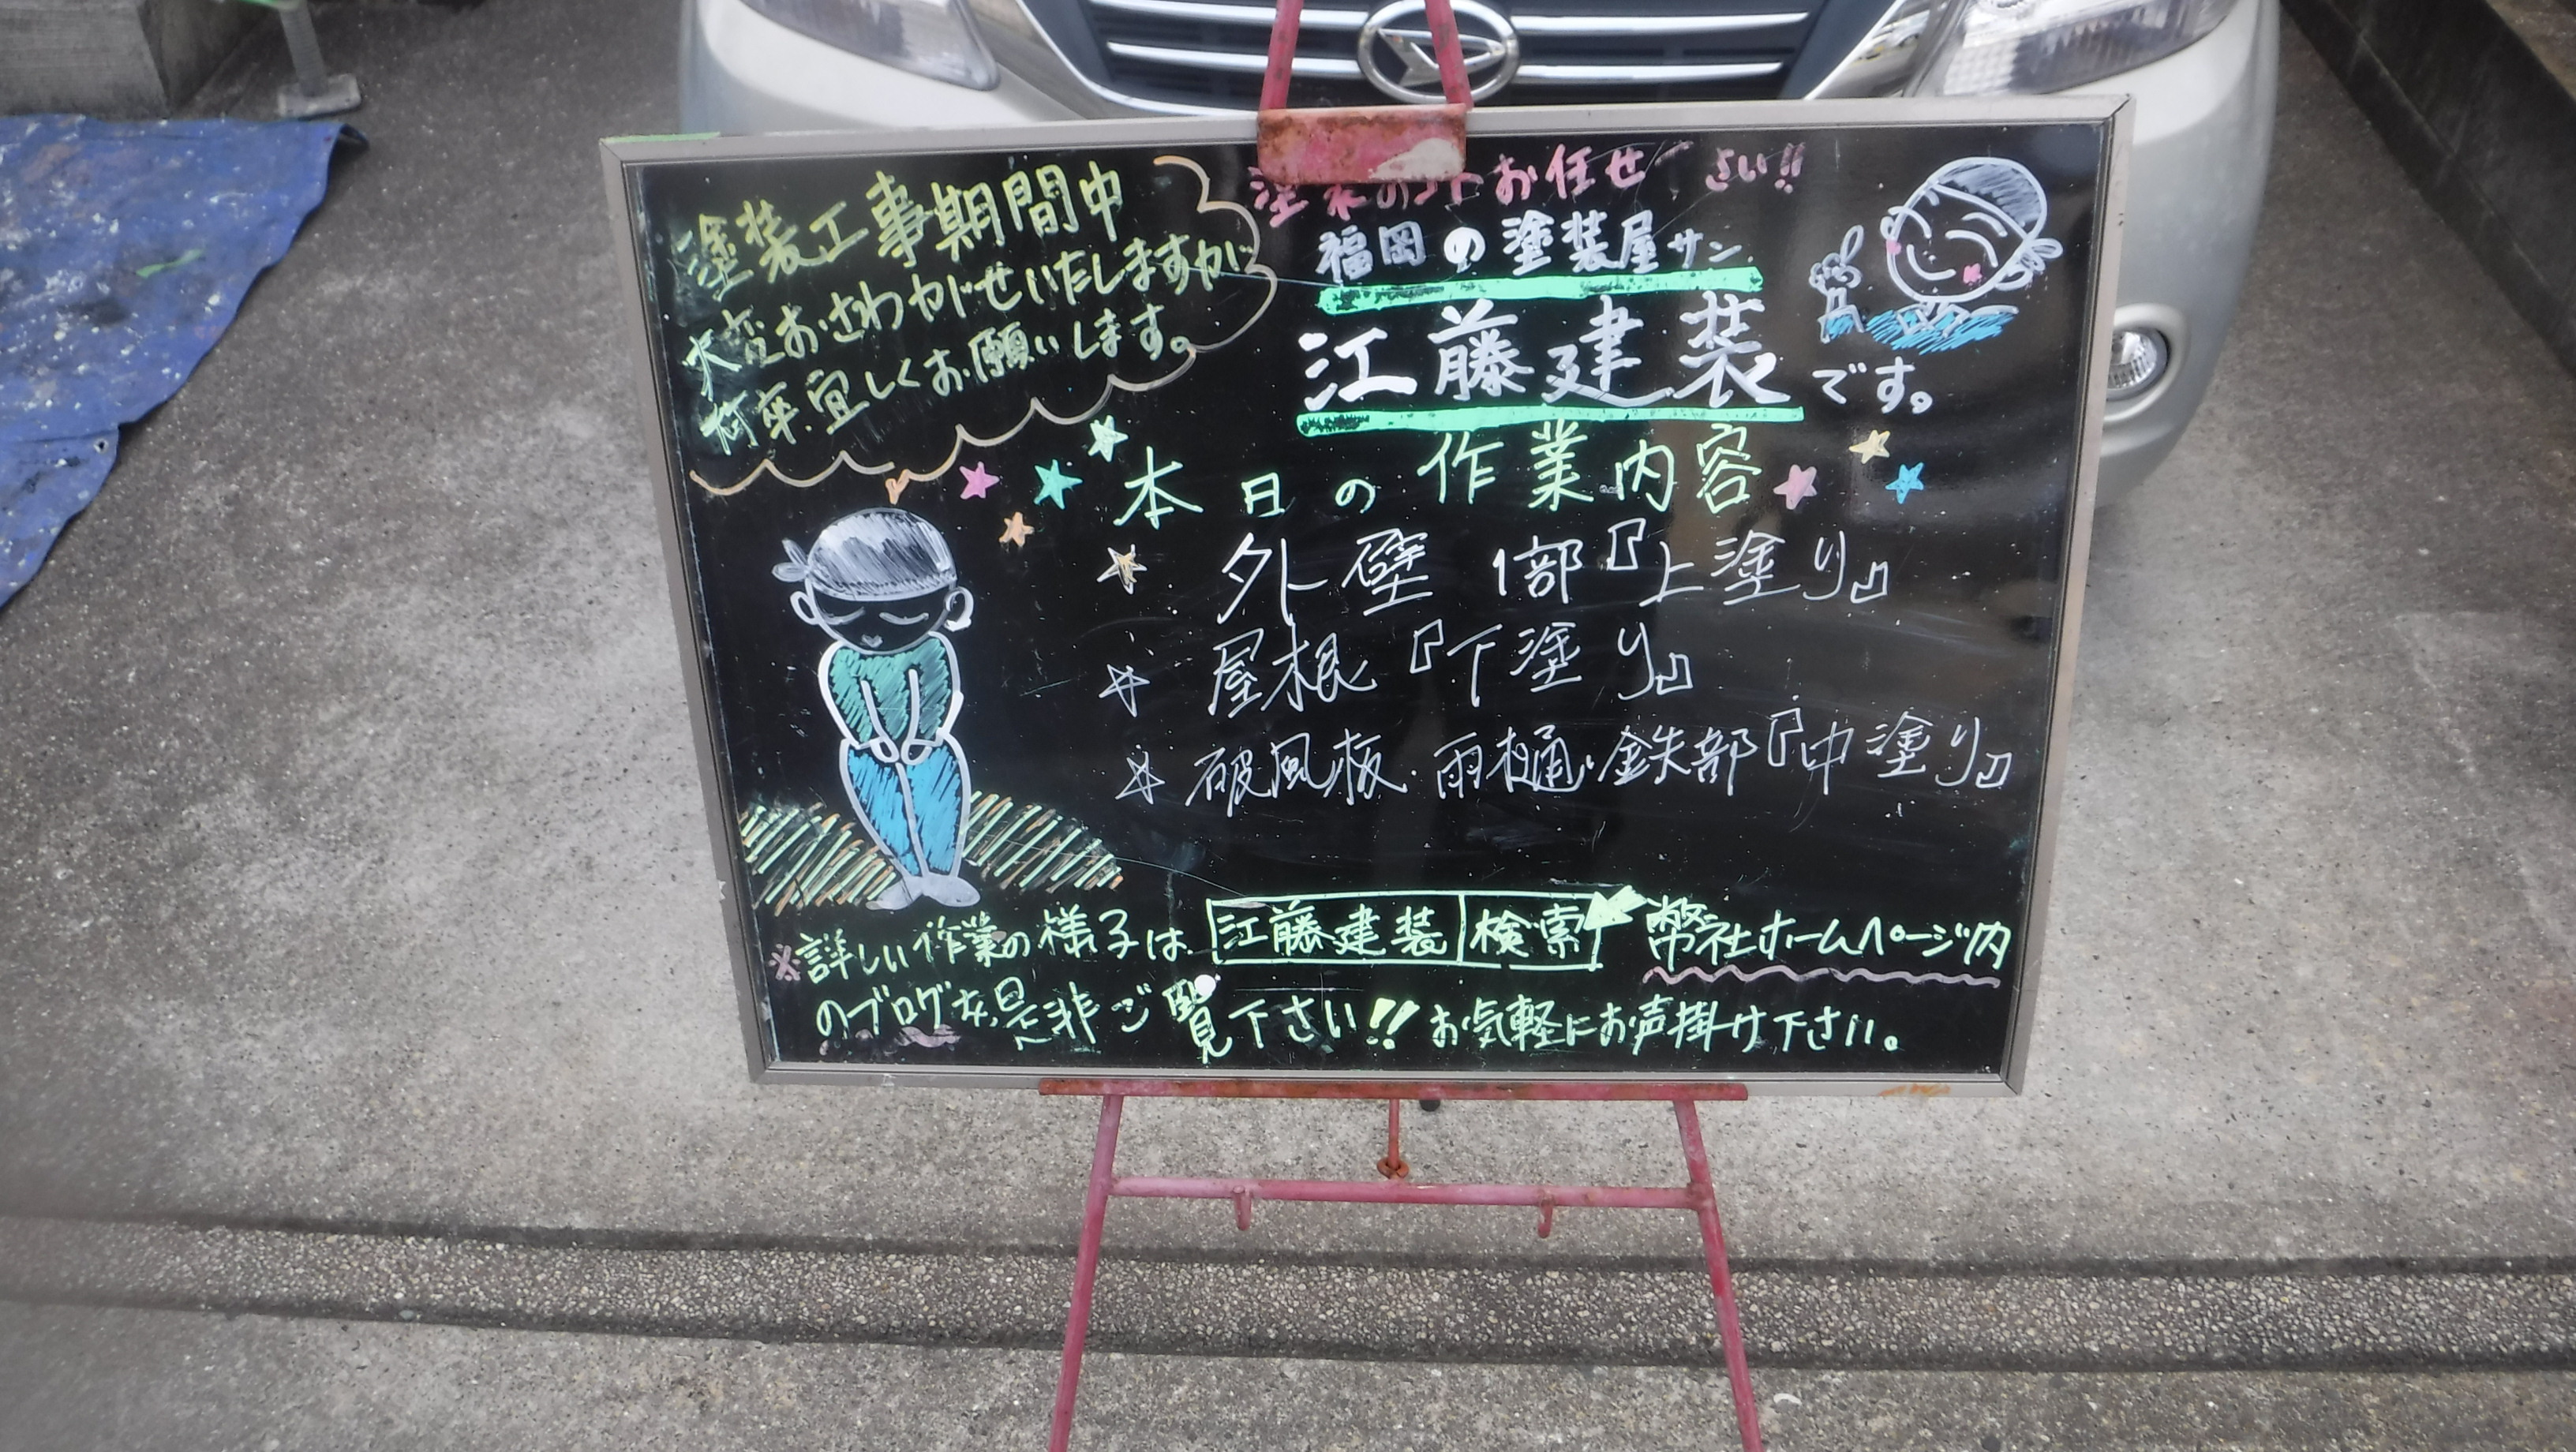 塗装工事期間中
大変おさわがせいたしますが
何卒宜しくお願いします。
塗装のコト お任せ さい!!
福岡の塗装屋サン
江藤建装です。
本日の作業内容
☆ 外壁 1部『上塗り』
☆ 屋根『下塗り』
☆ 破風板・雨樋・鉄部『中塗り』
※詳しい作業の様子は 江藤建装 検索 弊社ホームページ内
のブログを是非ご覧下さい!! お気軽にお声掛け下さい。